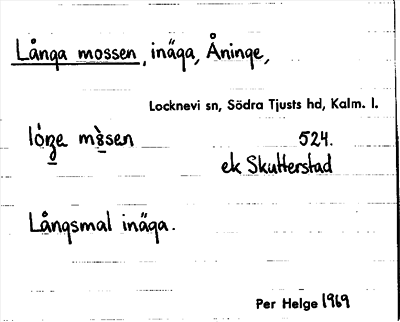 Långa mossen, inäga, Åninge,
Locknevi sn, Södra Tjusts hd, Kalm. l.
524.
ek Skutterstad
Långsmal inäga.
Per Helge 1969